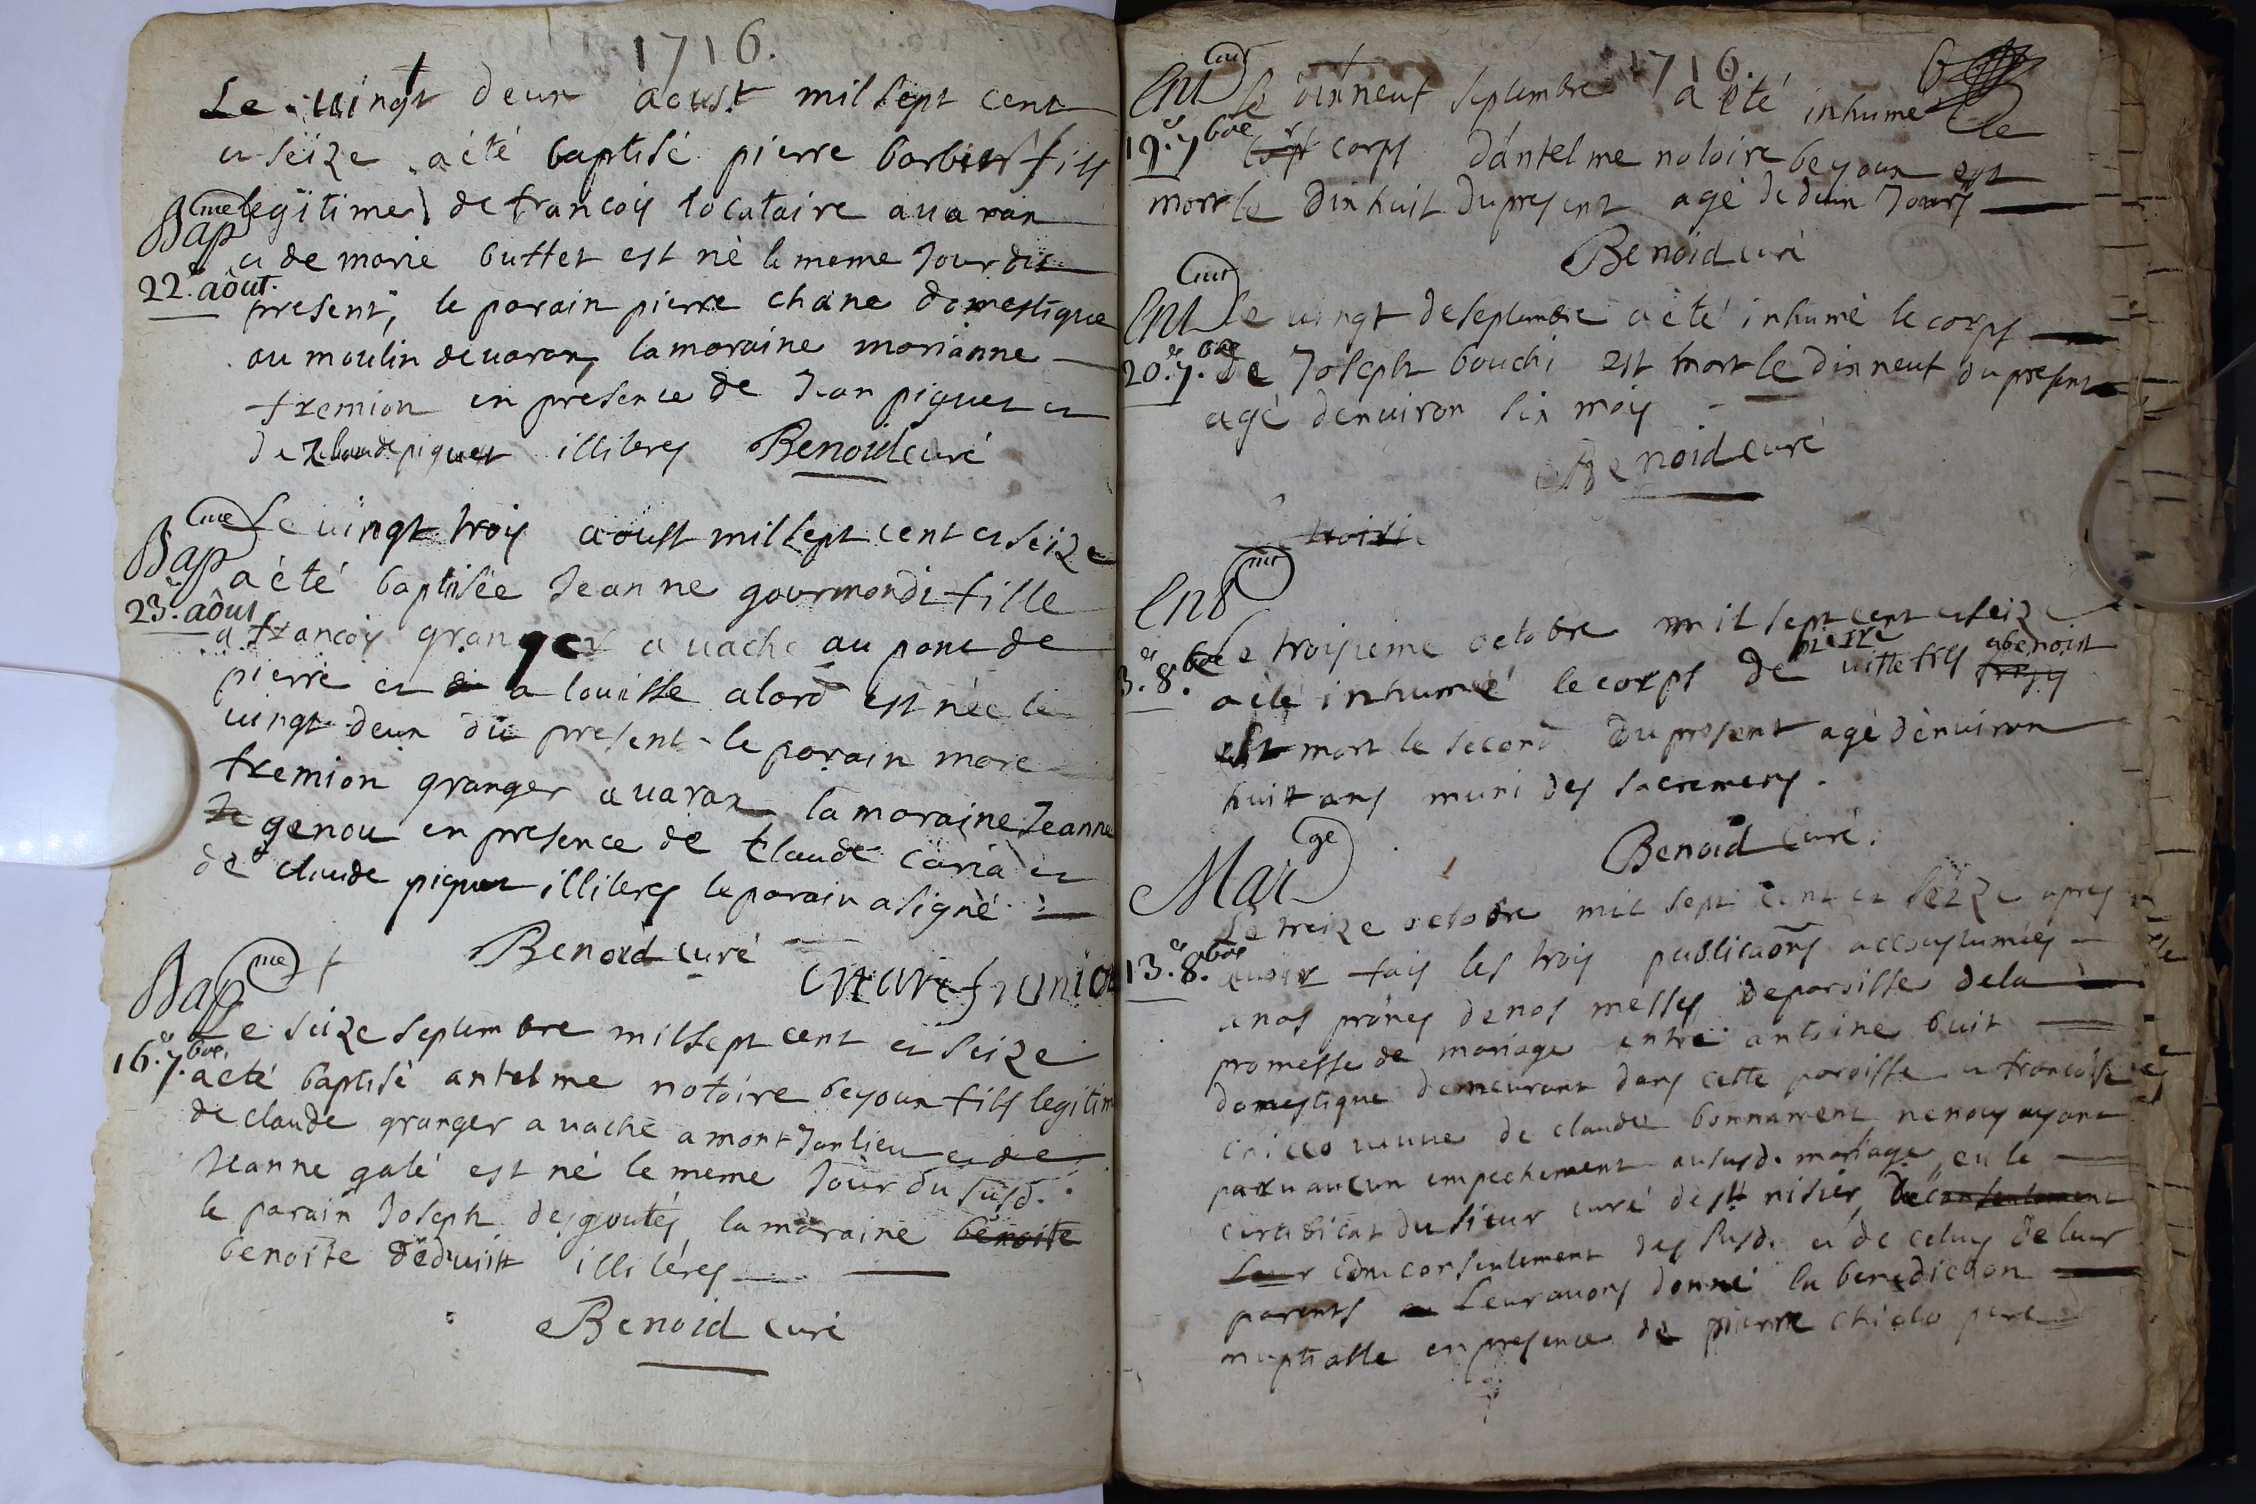 1716.
Le vingt deux aoust mil sept cent
et seize a été baptisé pierre barbier fils
Bapme legitime de francois locataire a varax
et de marie buttet est né le meme Jour du
22.e aôut.
present, le parain pierre chane domestique
au moulin de varax, la maraine marianne
fremion en présence de Jean piquet et
de claude piquet illiteres Benoid curé
Bapme Le vingt trois aoust mil sept cent et seize
a été baptisée Jeanne gourmondi fille
23.e aôut
a francois granger a vache au pont de
pierre et a louisse alard est née le
vingt deux du present le parain marc
fremion granger a varax la maraine Jeanne
genou en presence de Claude caria et
de claude piquet illiteres le parain a signé
Benoid curé
marc fremion
Bapme
Le seize septembre mil sept cent et seize
16.e 7.bre
a eté baptisé antelme notoire beyoux fils legitim
de claude granger a vache a mont Janlieu et de
Jeanne galé est né le meme Jour du susd.
le parain Joseph desgoutes, la maraine benoite
benoite deduitt illiléres
Benoid curé
1716. 6
Entmt le dixneuf septembre a été inhumé le
19.e 7.bre corps corps d'antelme notoire beyoux est
mort le dixhuit du present agé de deux Jours
Benoid curé
Entmt Le vingt de septembre a été inhumé le corps
20.e 7.bre de Joseph bouchi est mort le dixneuf du present
agé denviron six mois
Benoid curé
troisi
Entmt
Le troisieme octobre mil sept cent et seize
3.e 8.bre
a été inhumé le corps de pierre vitte fils a benoist
est mort le second du present agé d'environ
huitt ans muni des sacremens.
Benoid curé.
Marge
Le treize octobre mil sept cent et seize apres
13.e 8.bre
avoir fais les trois publicaons accoustumées
a nos prônes de nos messes de paroisse de la
promesse de mariage entre antoine buit
domestique demeurant dans cette paroisse et francoise
chicco veuve de claude bonnament ne nous ayant
paru aucun empechement au susd. mariage, eu le
certificat du sieur curé de st. nisier, du consentement
leur du consentement des susd. et de celuy de leur
parents leur avons donné la benediction
nuptialle en presence de pierre chiclo pere